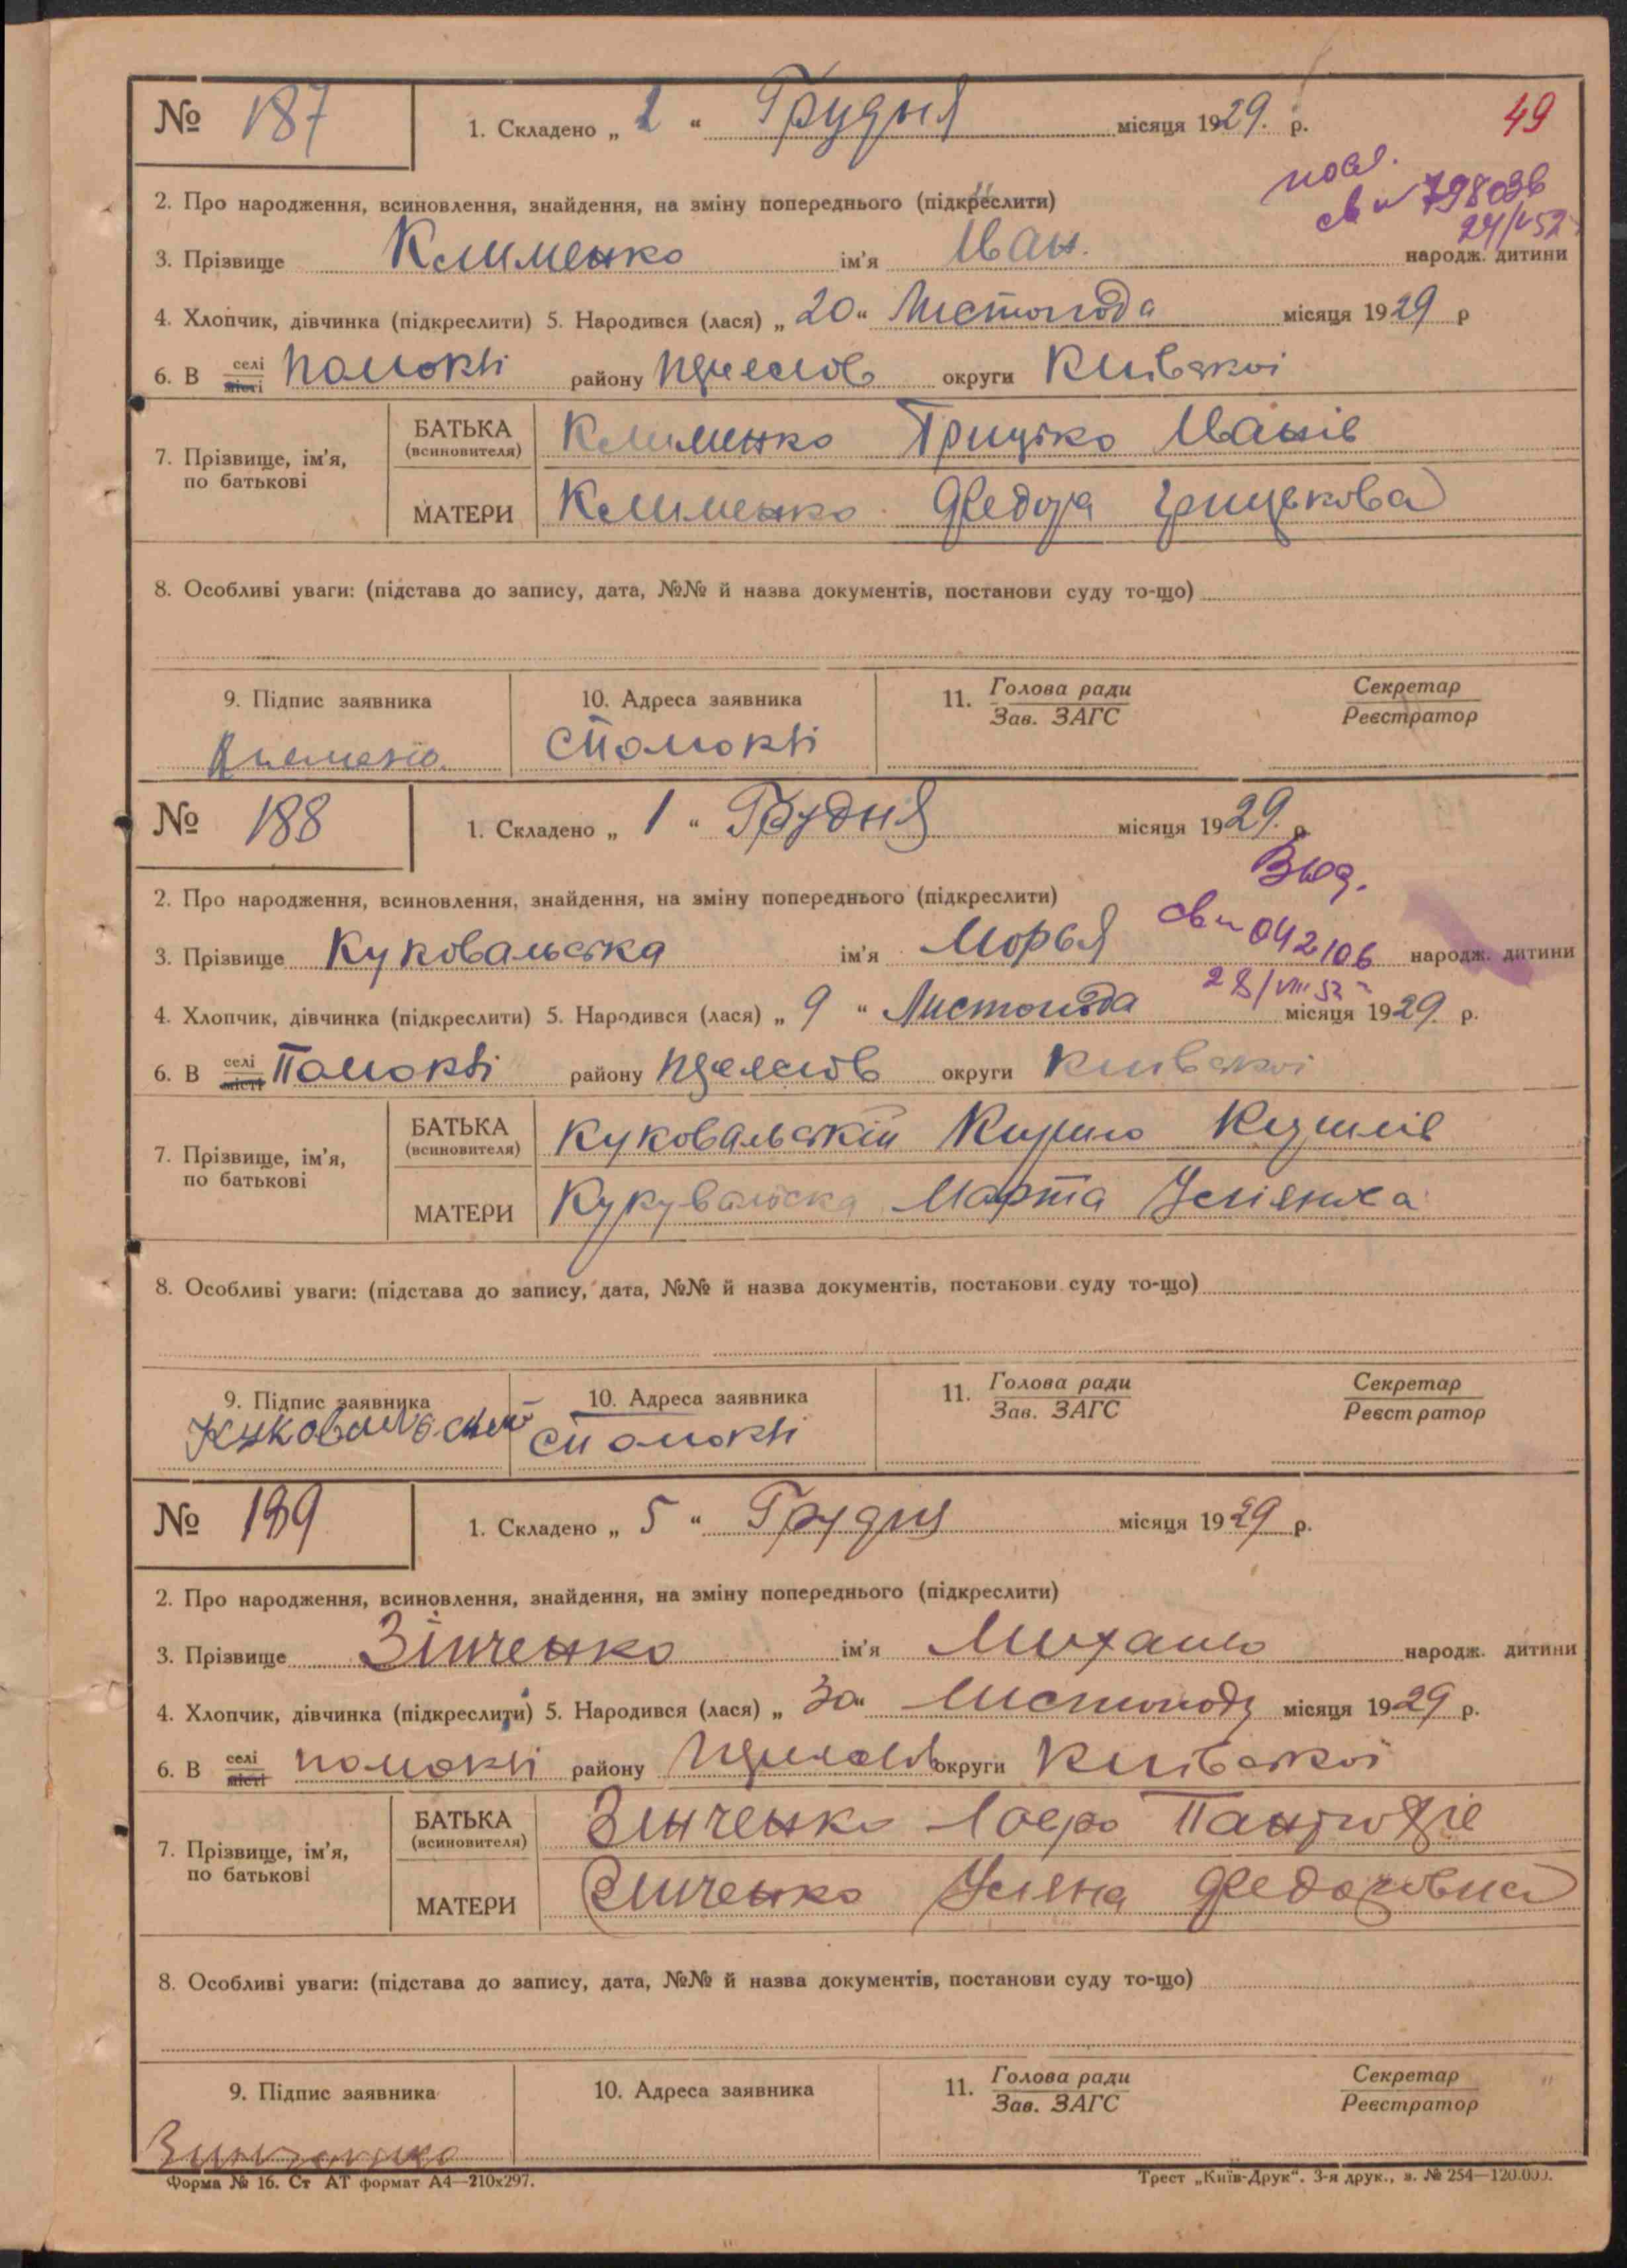 № 187 1. Складено „ 1 “ Грудня місяця 1929. р. 49
пов.
2. Про народження, всиновлення, знайдення, на зміну попереднього (підкреслити) св № 798036
24/V 52
3. Прізвище Клименко ім'я Іван. народж. дитини
4. Хлопчик, дівчинка (підкреслити) 5. Народився (лася) „ 20 “ Листопада місяця 1929 р
6. В селі місті Помоклі району округи Київської
7. Прізвище, ім'я, по батькові
БАТЬКА (всиновителя) Клименко Грицько Іванів
МАТЕРИ Клименко Федора Грицькова
8. Особливі уваги: (підстава до запису, дата, №№ й назва документів, постанови суду то-що)
9. Підпис заявника 10. Адреса заявника 11. Голова ради Секретар
Зав. ЗАГС Реєстратор
с Помоклі
№ 188 1. Складено „ 1 “ Грудня місяця 1929. р.
Выд.
2. Про народження, всиновлення, знайдення, на зміну попереднього (підкреслити)
3. Прізвище Куковальська ім'я Морья св № 042106 народж. дитини
28/VIII 52
4. Хлопчик, дівчинка (підкреслити) 5. Народився (лася) „ 9 “ Листопада місяця 1929. р.
6. В селі місті Помоклі району округи Київської
7. Прізвище, ім'я, по батькові
БАТЬКА (всиновителя) Куковальскій Кирило
МАТЕРИ Кукувальска Марта
8. Особливі уваги: (підстава до запису, дата, №№ й назва документів, постанови суду то-що)
9. Підпис заявника 10. Адреса заявника 11. Голова ради Секретар
Зав. ЗАГС Реєстратор
Куковальский с Помоклі
№ 189 1. Складено „ 5 “ Грудня місяця 1929 р.
2. Про народження, всиновлення, знайдення, на зміну попереднього (підкреслити)
3. Прізвище Зінченко ім'я Михайло народж. дитини
4. Хлопчик, дівчинка (підкреслити) 5. Народився (лася) „ 30 “ Листопада місяця 1929 р.
6. В селі місті Помоклі району округи Київської
7. Прізвище, ім'я, по батькові
БАТЬКА (всиновителя) Зинченко
МАТЕРИ Зинченко Уляна Федоровна
8. Особливі уваги: (підстава до запису, дата, №№ й назва документів, постанови суду то-що)
9. Підпис заявника 10. Адреса заявника 11. Голова ради Секретар
Зав. ЗАГС Реєстратор
Форма № 16. Ст АТ формат А4—210х297. Трест „Київ-Друк“. 3-я друк., з. № 254—120.000.